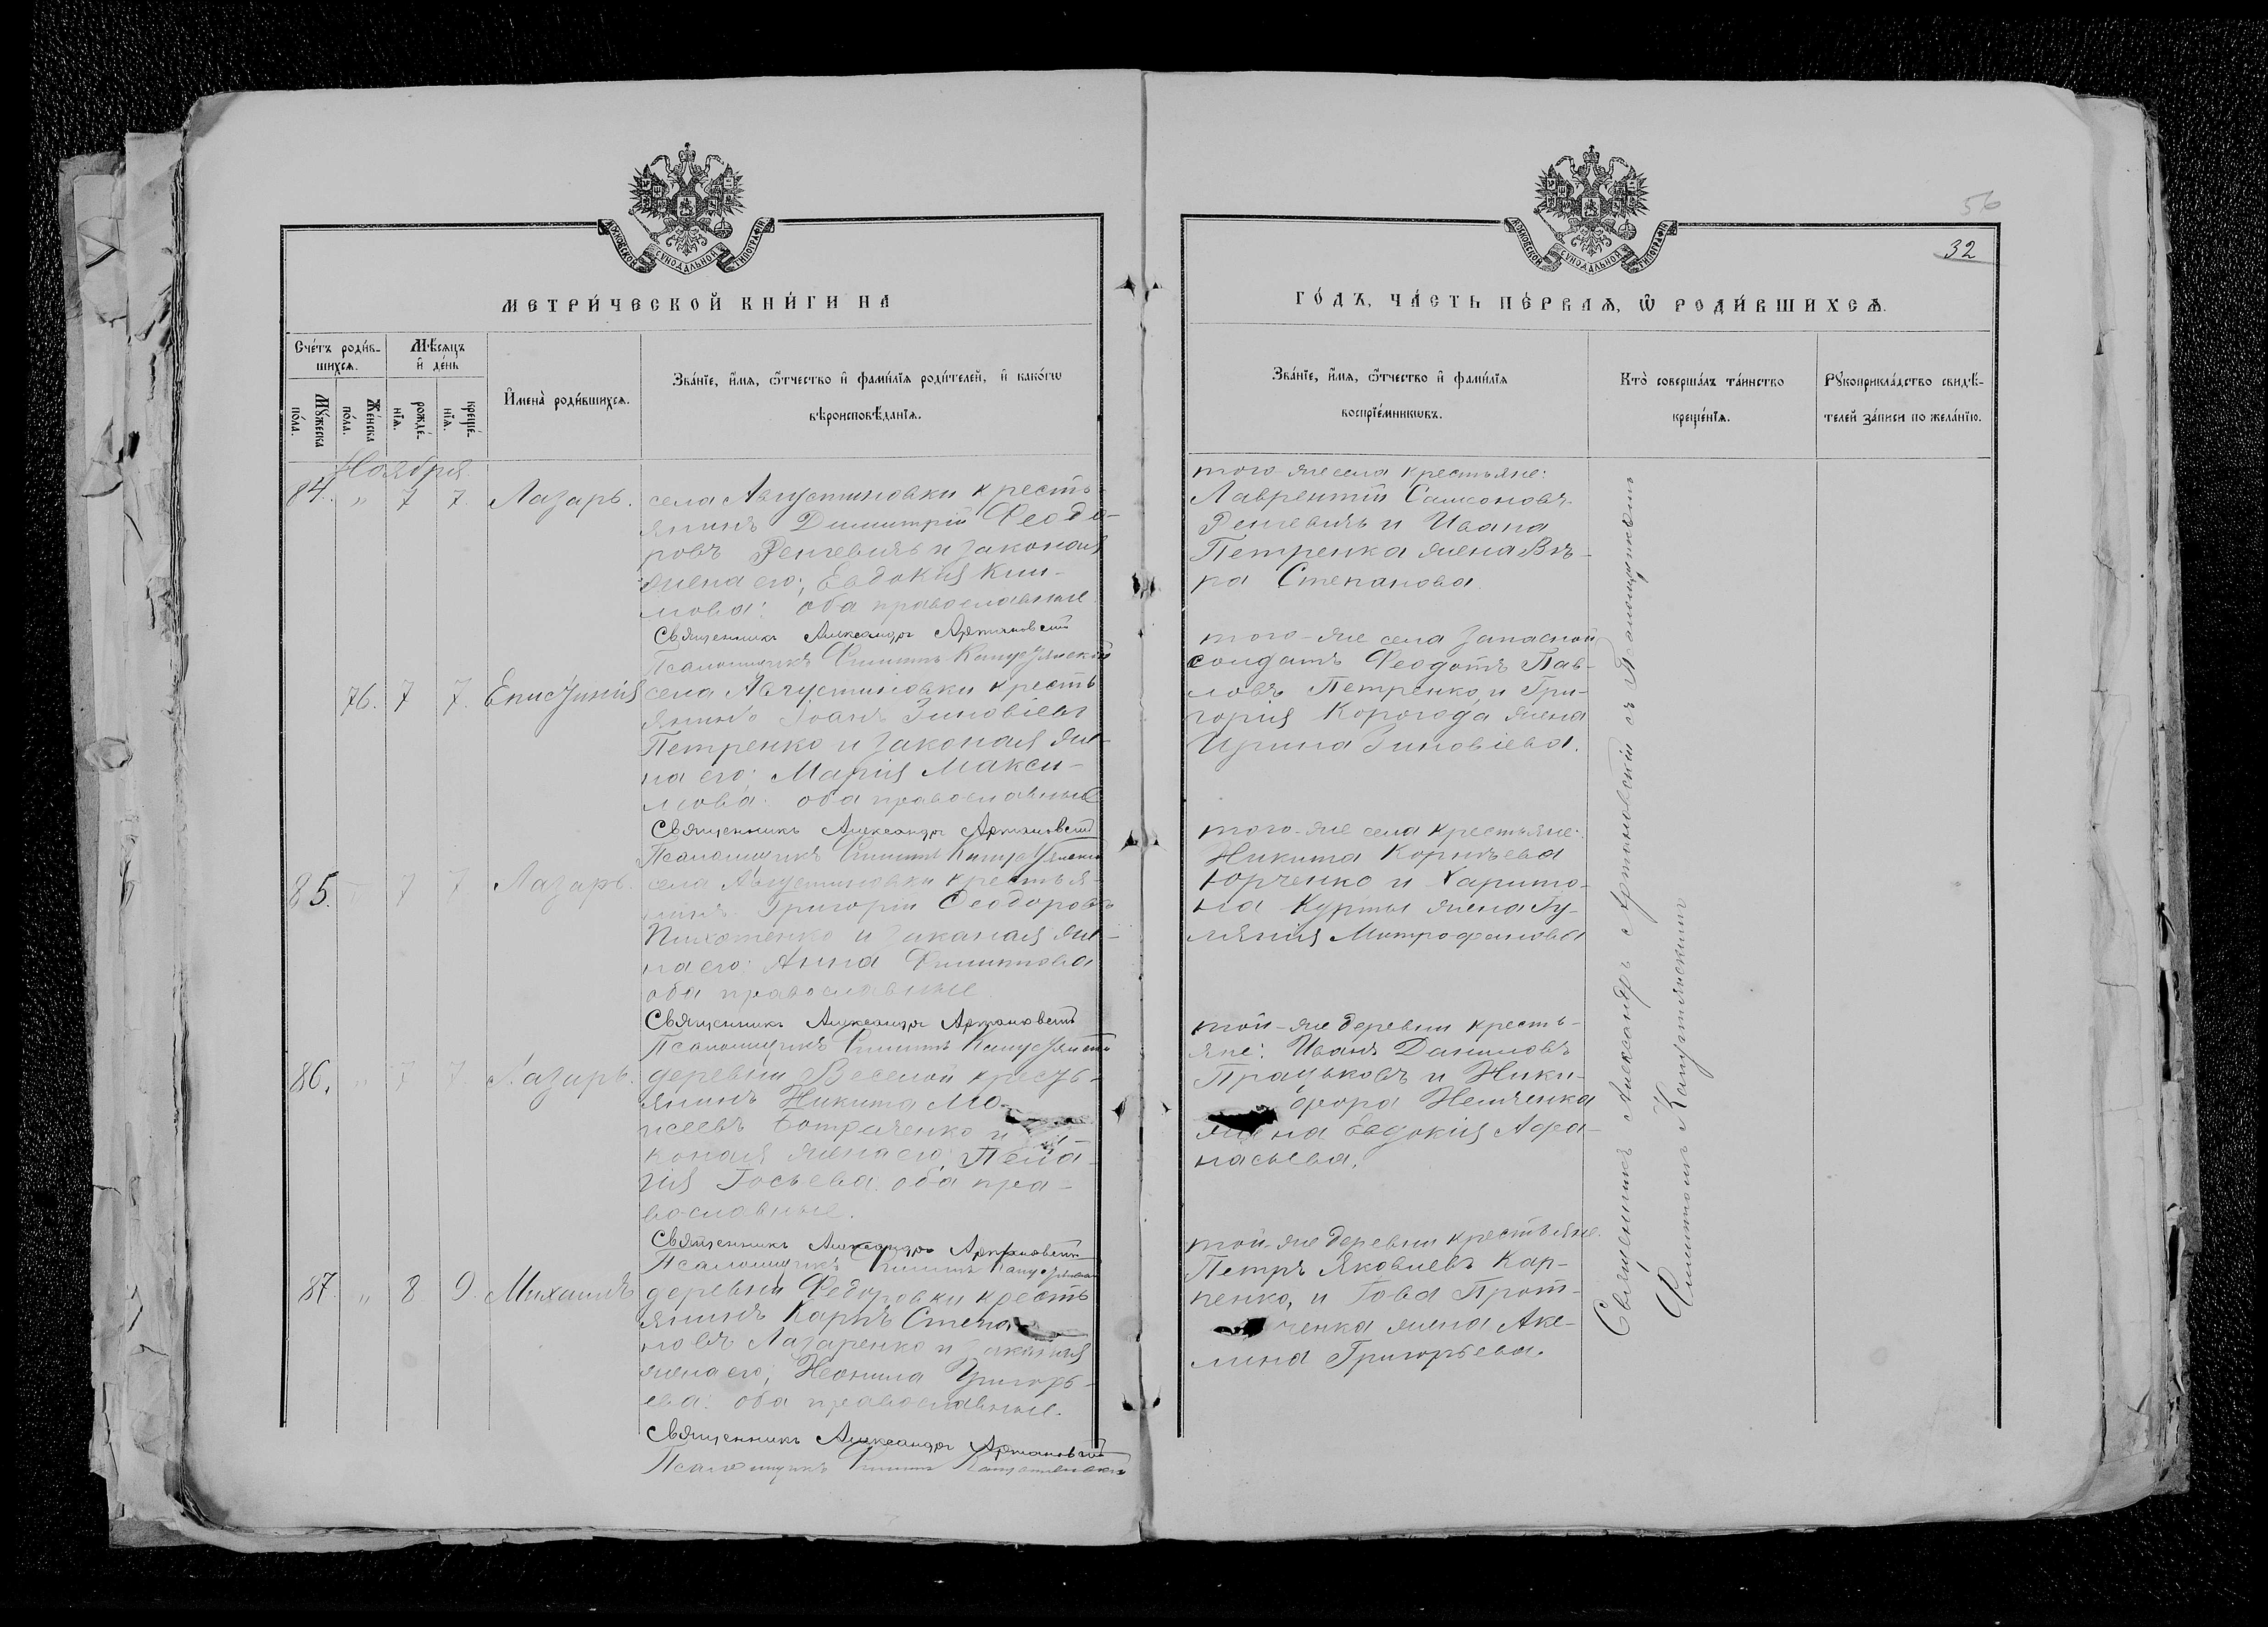 МОСКОВСКОЙ СѴНОДАЛЬНОЙ ТИПОГРАФІИ
МЕТРИ́ЧЕСКОЙ КНИ́ГИ НА
Сче́тъ роди́в-
шихсѧ.
Мѣ́сѧцъ
и҆ де́нь
Мꙋ́жеска
по́ла.
Же́нска
по́ла.
рожде́-
нїѧ.
креще́-
нїѧ.
И҆мена̀ роди́вшихсѧ.
Зва́нїе, и҆́мѧ, ѻ҆́тчество и҆ фами́лїѧ роди́телей, и҆ како́гѡ
вѣроисповѣ́данїѧ.
Ноября
84. " 7 7. Лазарь. села Августиновки кресть-
янинъ Димитрій Феодо-
ровъ и законая
жена его; Евдокия Кли-
мова: оба православные
Священникъ Александръ Артановскій
Псаломщикъ Филиппъ Капустянскій
76. 7 7. села Августиновки кресть
янинъ Іоанъ Зиновіевъ
Петренко и законая же-
на его: Марія Макси-
мова: оба православные
Священникъ Александръ Артановскій
Псаломщикъ Филиппъ Капустянскій
85. 7 7. Лазарь. села Августиновки крестья-
нинъ Григорій Феодоровъ
и законая же-
на его: Анна Филиппова
оба православные
Священникъ Александръ Артановскій
Псаломщикъ Филиппъ Капустянскій
86. " 7 7. Лазарь. деревни Веселой кресть-
янинъ Никита Мо-
исеевъ и за-
коная жена его; Пела-
гія оба пра-
вославные.
Священникъ Александръ Артановскій
Псаломщикъ Филиппъ Капустянскій
87. " 8 9. Михаилъ деревни Федоровки кресть
янинъ Карпъ Степа
новъ Лазаренко и законая
жена его; Неонила Григорь-
ева: оба православные.
Священникъ Александръ Артановскій
Псаломщикъ Филиппъ Капустянскій
МОСКОВСКОЙ СѴНОДАЛЬНОЙ ТИПОГРАФІИ
56
32
ГО́ДЪ, ЧА́СТЬ ПЕ́РВАѦ, Ѡ҆ РОДИ́ВШИХСѦ.
Зва́нїе, и҆́мѧ, ѻ҆́тчество и҆ фами́лїѧ
воспрїе́мникѡвъ.
Кто̀ соверша́лъ та́инство
креще́нїѧ.
Рꙋкоприкла́дство свидѣ́-
телей за́писи по жела́нїю.
того-же села крестьяне:
Лаврентій Самсоновъ
и Ивана
Петренка жена Вѣ-
ра Степанова.
того-же села запасной
солдатъ Феодотъ Пав-
ловъ Петренко, и Гри-
горія Корогода жена
Ирина Зиновіева.
того-же села крестьяне:
Никита Корнѣева
Юрченко и Харито-
на Курты жена Гу-
ляния Митрофанова
той-же деревни кресть-
яне: Иванъ Даниловъ
и Ники-
фора Немченка
жена Евдокия Афа-
насьева.
той-же деревни крестьяне.
Петръ Яковлевъ Кар-
пенко, и Іова Прот-
ченка жена Аке-
лина Григорьева.
Священникъ Александръ Артановскій съ Псаломщикомъ
Филиппомъ Капустянскимъ